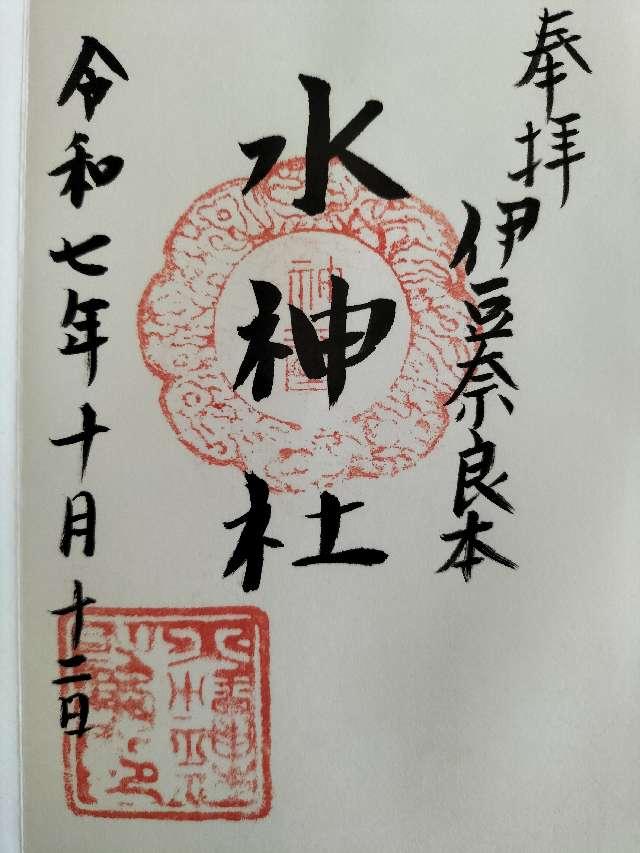 奉拝
伊豆奈良本
水神社
令和七年十月十二日